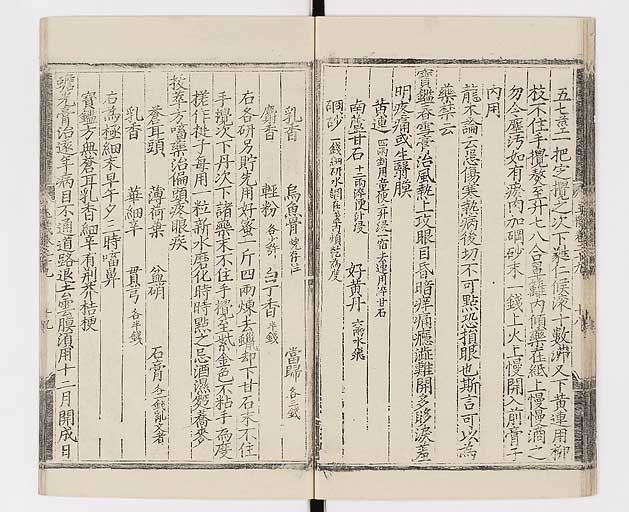 一把定攪之次下蕤仁候滾十數沸又下黃連用柳
枝不住手攪熬至升七八合 內傾藥在紙上慢慢滴之
勿令塵汚如有瘀肉加硇砂末一錢上火上慢開入前膏子
內用
龍木論云患傷寒熱病後切不可點恐損眼也斯言可以為
藥禁云
寶鑑春雪膏治風熱上攻眼目昏暗痒痛癮澁難開多眵淚羞
明疼痛或生瞖膜
黃連 四兩 童便 升浸 宿去連用 甘石
南蘆甘石 十二兩 浸 好黃丹 六兩水飛
硇砂 一錢細研水 為度
乳香 烏魚骨 燒存性 當歸 各二錢
麝香 輕粉 各少許 白丁香 半錢
右各研另貯先用好蜜一斤四兩煉去蠟却下甘石末不住
手攪次下丹次下諸藥末不住手攪至紫金色不粘手為度
搓作挺子每用一粒新水磨化時時點之忌酒濕麪蕎麥
拔萃方㗜藥治偏頭疼眼疾
蒼耳頭 薄荷葉 盆硝 石膏 亂文者
乳香 華細辛 貫芎 各半錢
右為極細末早午夕三時㗜鼻
寶鑑方與蒼耳乳香細辛有荊芥桔梗
蟾光膏治遠年病目不通道路退去雲膜須用十二月開成日